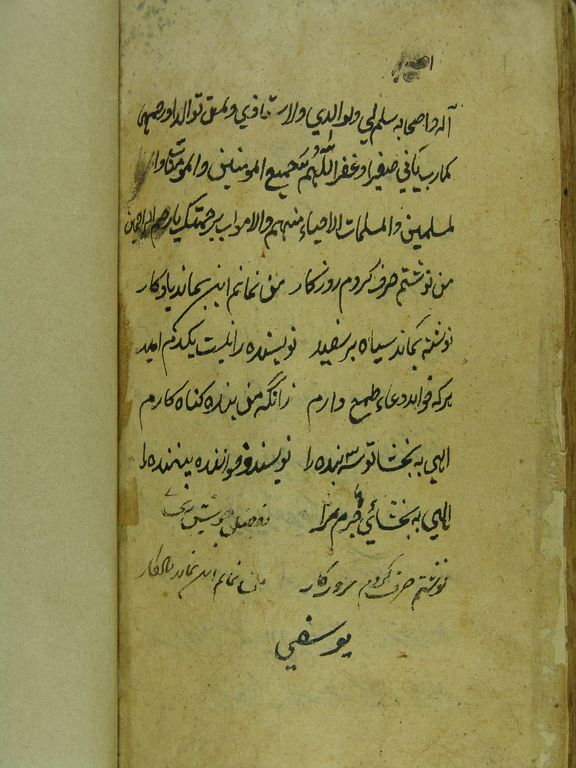 آله واصحابه سلم لي ولوالدي ولاستاذي ولمن توالد اورحمهما
كما ربياني صغيرا وغفر اللهم جميع المومنين والمومنات وال
لمسلمين والمسلمات الاحياء منهم والاموات برحمتك يا ارحم الراحمين
من نوشتم صرف کردم روزکار من نمانم این بماند یادکار
نوشته بماند سیاه بر سفید نویسنده را نیست یکدم امید
هرکه خواند دعاء طمع دارم زانکه من بنده کناه کارم
الهی به بخشا تو سه بنده را نویسنده و خواننده بیننده را
الهی به بخشائی جرم مرا بفضل خویش
نوشتم صرف کردم روزکار من نمانم این بماند یادکار
يوسفي